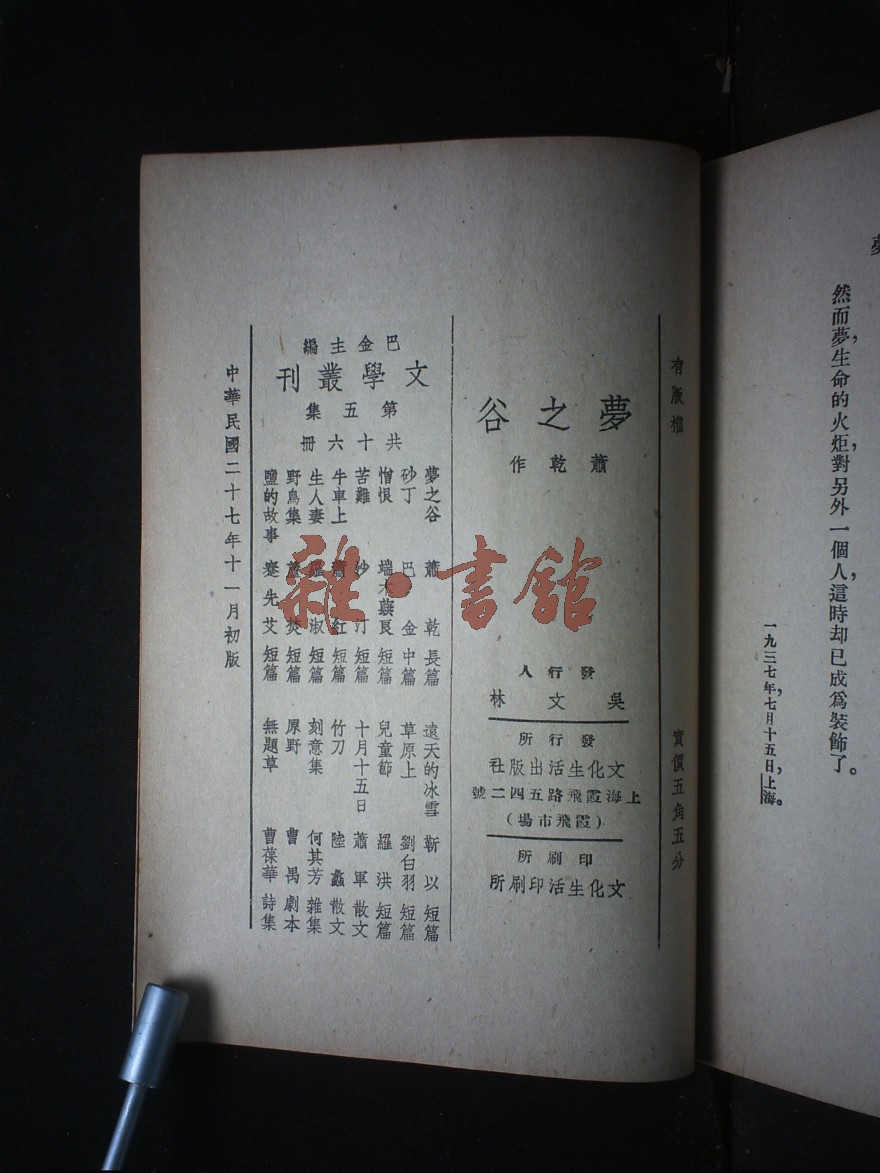 夢
然而夢，生命的火炬，對另外一個人，這時却已成爲裝飾了。
一九三七年七月十五日，上海。
有版權
實價五角五分
夢之谷
蕭乾作
發行人
吳文林
發行所
文化生活出版社
上海霞飛路五四二號
(霞飛市場)
印刷所
文化生活印刷所
巴金主編
文學叢刊
第五集
共十六冊
夢之谷 蕭乾 長篇
砂丁 巴金 中篇
憎恨 端木蕻良 短篇
苦難 沙汀 短篇
牛車上 蕭紅 短篇
生人妻 羅淑 短篇
野鳥集 蘆焚 短篇
鹽的故事 蹇先艾 短篇
遠天的冰雪 靳以 短篇
草原上 劉白羽 短篇
兒童節 羅洪 短篇
十月十五日 蕭軍 散文
竹刀 陸蠡 散文
刻意集 何其芳 雜集
原野 曹禺 劇本
無題草 曹葆華 詩集
中華民國二十七年十一月初版
雜·書館